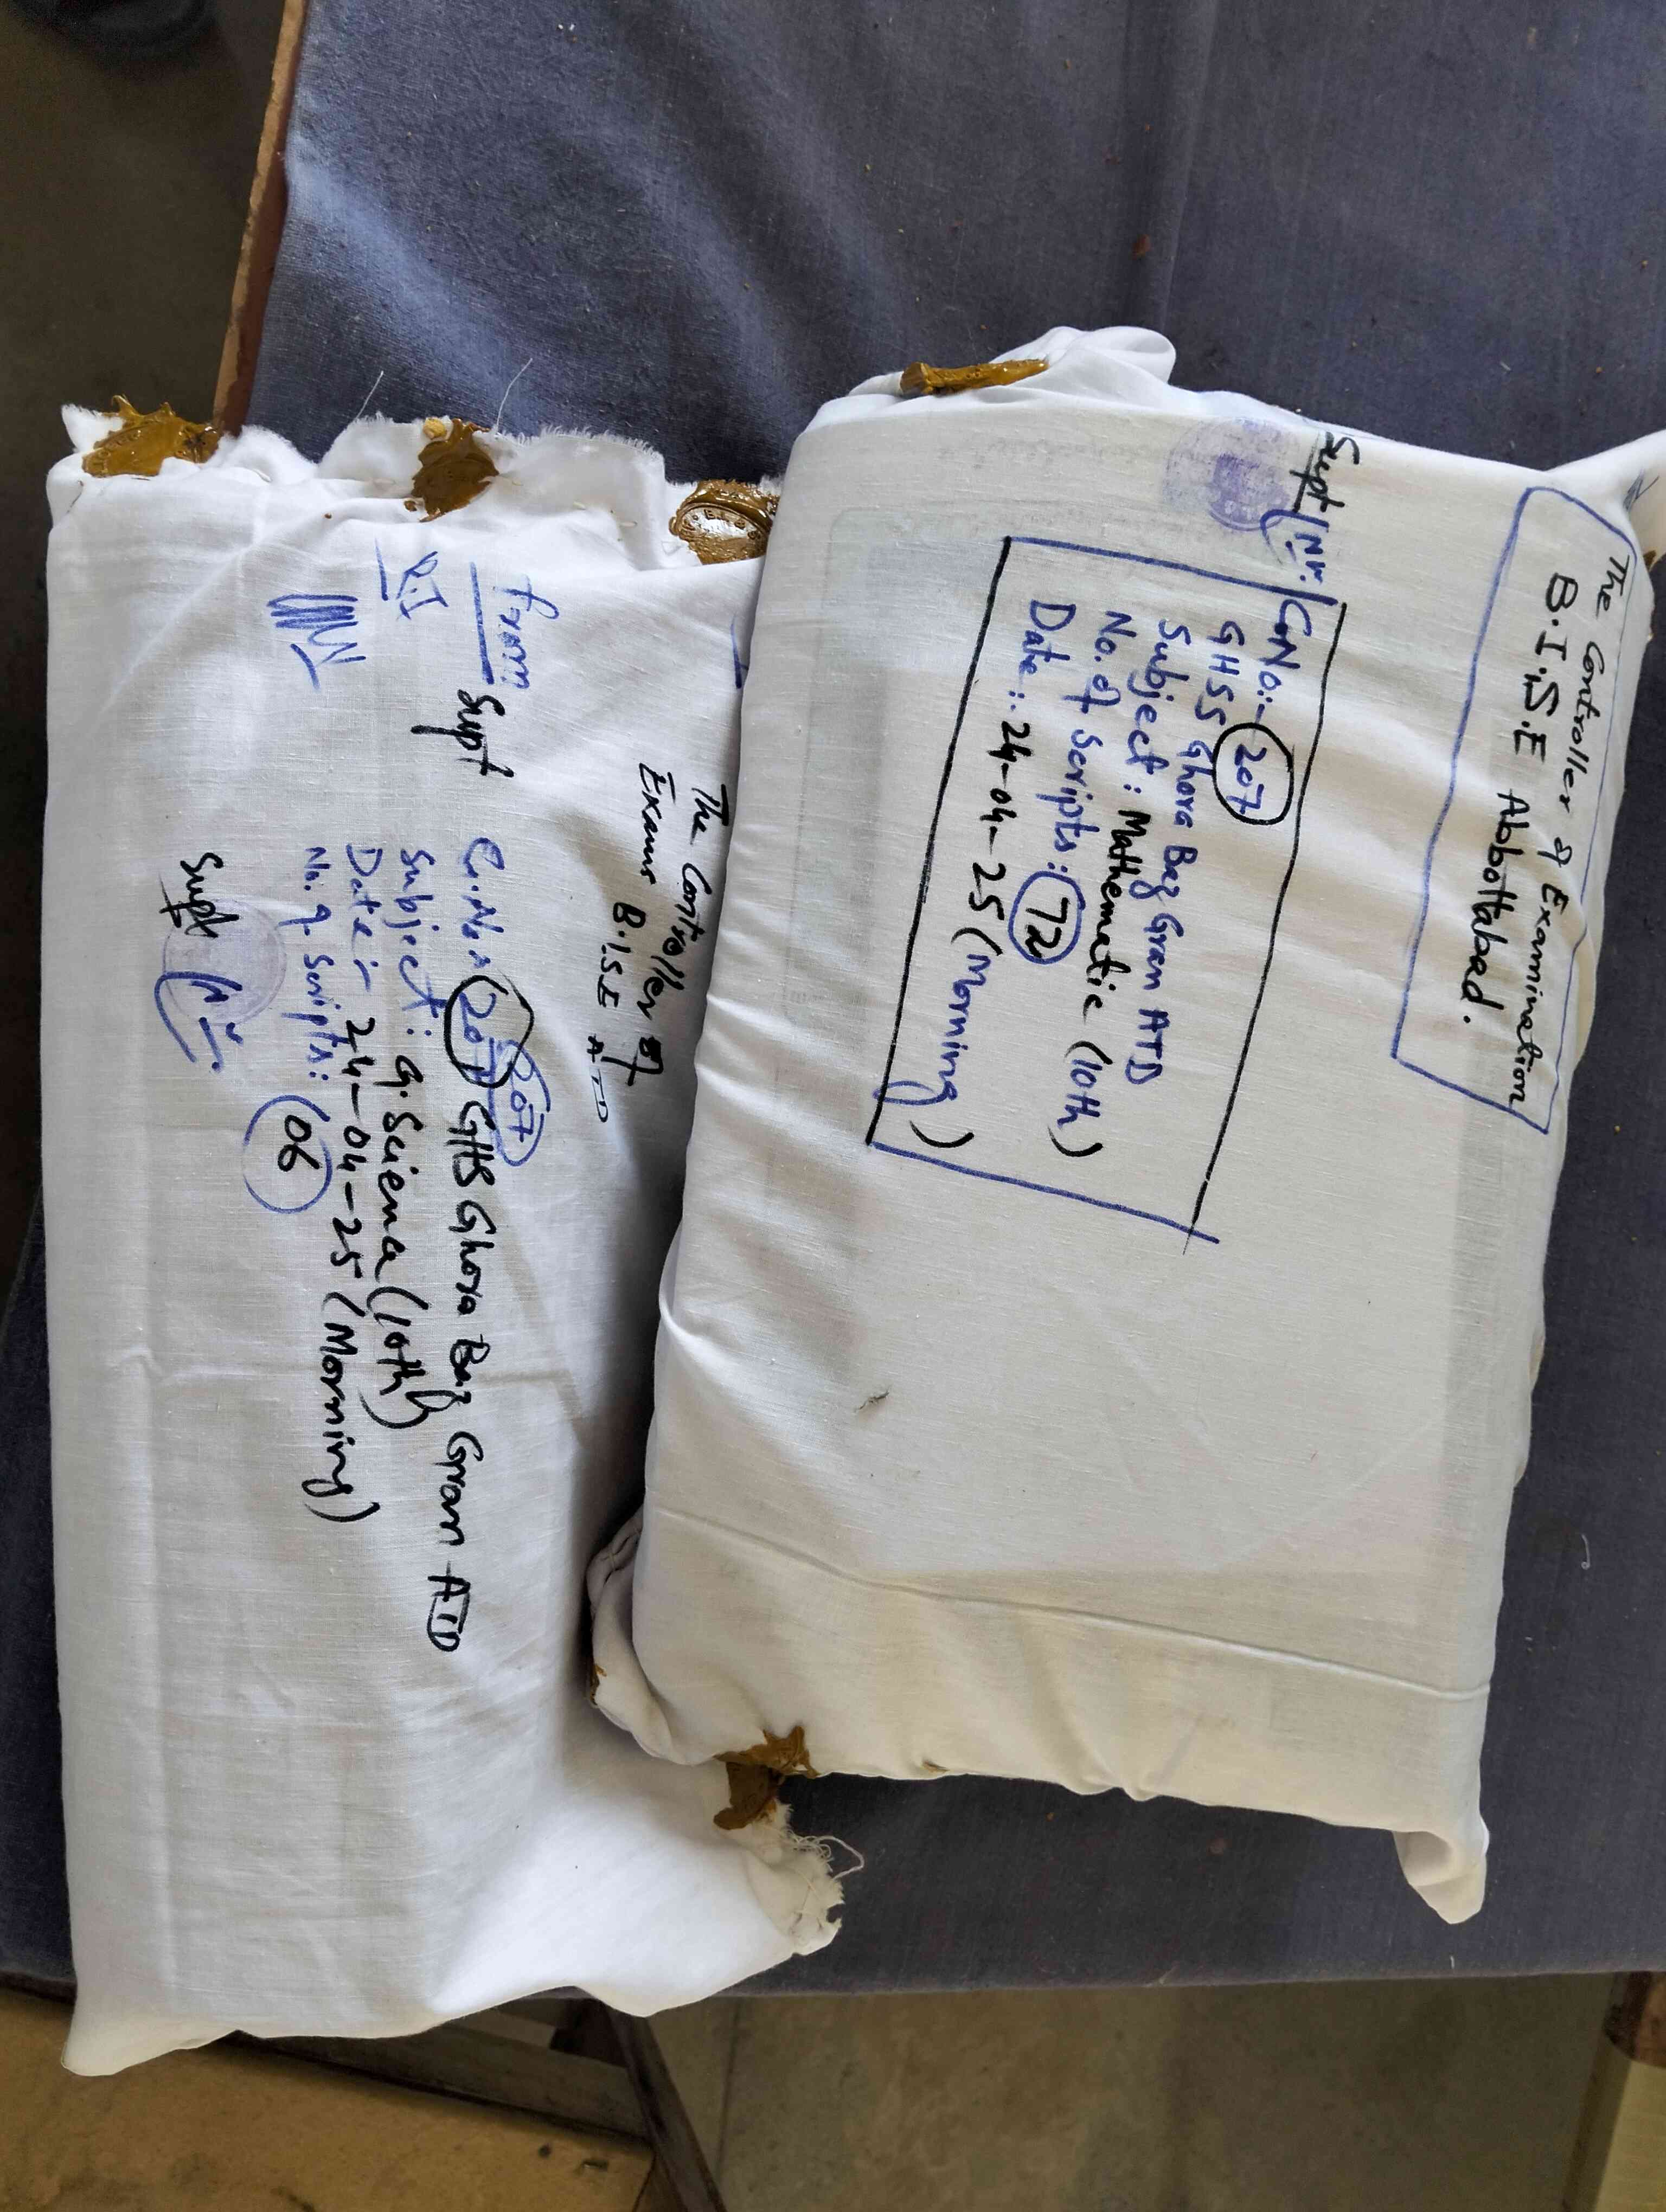 The Controller of Examination
B.I.S.E Abbottabad.
Supt
C.No:- 207
GHSS Ghora Baz Gran ATD
Subject : Mathematic (10th)
No. of Scripts: 72
Date :. 24-04-25 (Morning)
The Controller of
Exams B.I.S.E ATD
from
Supt
R.I
207
C.No: 207 GHS Ghora Baz Gran ATD
Subject: G.Science (10th)
Date :- 24-04-25 (Morning)
No. of Scripts: 06
Supt